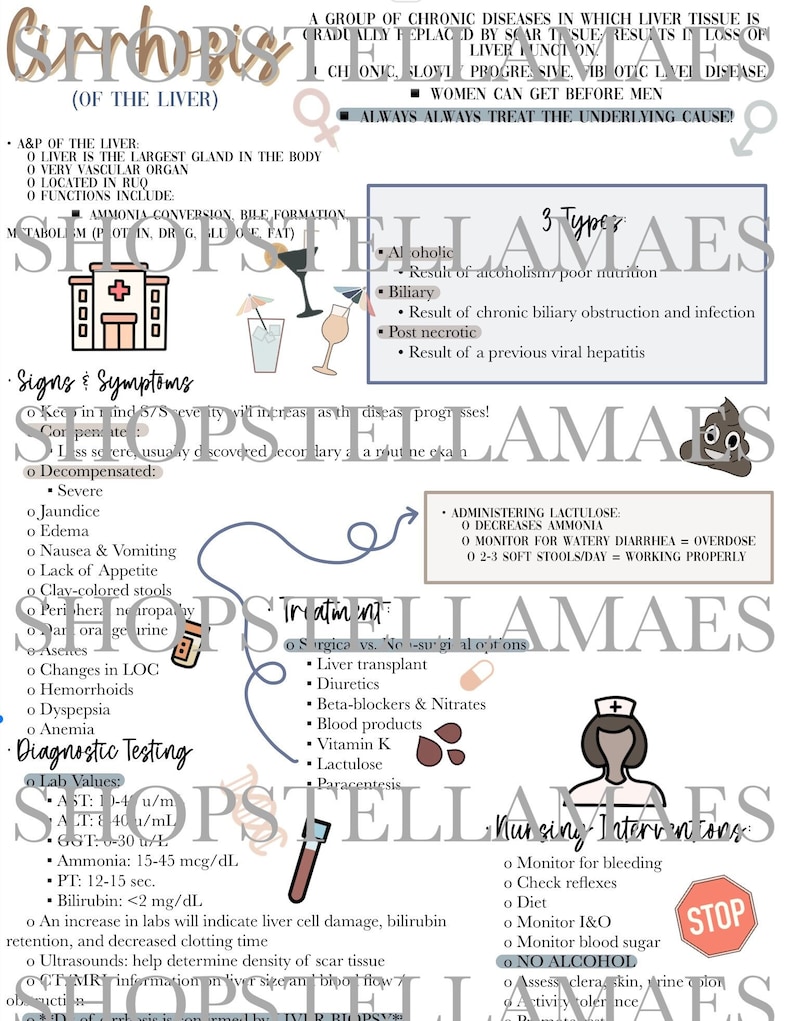 Cirrhosis
(OF THE LIVER)
A GROUP OF CHRONIC DISEASES IN WHICH LIVER TISSUE IS
GRADUALLY REPLACED BY SCAR TISSUE; RESULTS IN LOSS OF
LIVER FUNCTION.
▪ CHRONIC, SLOWLY PROGRESSIVE, FIBROTIC LIVER DISEASE
▪ WOMEN CAN GET BEFORE MEN
▪ ALWAYS ALWAYS TREAT THE UNDERLYING CAUSE!
SHOPSTELLAMAES
• A&P OF THE LIVER:
O LIVER IS THE LARGEST GLAND IN THE BODY
O VERY VASCULAR ORGAN
O LOCATED IN RUQ
O FUNCTIONS INCLUDE:
▪ AMMONIA CONVERSION, BILE FORMATION,
METABOLISM (PROTEIN, DRUG, GLUCOSE, FAT)
SHOPSTELLAMAES
3 Types:
▪ Alcoholic
• Result of alcoholism/poor nutrition
▪ Biliary
• Result of chronic biliary obstruction and infection
▪ Post necrotic
• Result of a previous viral hepatitis
· Signs & Symptoms
o Keep in mind S/S severity will increase as the disease progresses!
o Compensated:
▪ Less severe, usually discovered secondary at a routine exam
SHOPSTELLAMAES
o Decompensated:
▪ Severe
o Jaundice
o Edema
o Nausea & Vomiting
o Lack of Appetite
o Clay-colored stools
o Peripheral neuropathy
o Dark orange urine
o Ascites
o Changes in LOC
o Hemorrhoids
o Dyspepsia
o Anemia
• ADMINISTERING LACTULOSE:
O DECREASES AMMONIA
O MONITOR FOR WATERY DIARRHEA = OVERDOSE
O 2-3 SOFT STOOLS/DAY = WORKING PROPERLY
SHOPSTELLAMAES
· Treatment:
o Surgical vs. Non-surgical options
▪ Liver transplant
▪ Diuretics
▪ Beta-blockers & Nitrates
▪ Blood products
▪ Vitamin K
▪ Lactulose
▪ Paracentesis
· Diagnostic Testing
o Lab Values:
▪ AST: 10-40 u/mL
▪ ALT: 8-40 u/mL
▪ GGT: 0-30 u/L
▪ Ammonia: 15-45 mcg/dL
▪ PT: 12-15 sec.
▪ Bilirubin: <2 mg/dL
o An increase in labs will indicate liver cell damage, bilirubin
retention, and decreased clotting time
o Ultrasounds: help determine density of scar tissue
o CT/MRI: information on liver size and blood flow /
obstruction
o **Dx of cirrhosis is confirmed by LIVER BIOPSY**
SHOPSTELLAMAES
· Nursing Interventions:
o Monitor for bleeding
o Check reflexes
o Diet
o Monitor I&O
o Monitor blood sugar
o NO ALCOHOL
o Assess sclera, skin, urine color
o Activity tolerance
o Promote rest
STOP
SHOPSTELLAMAES